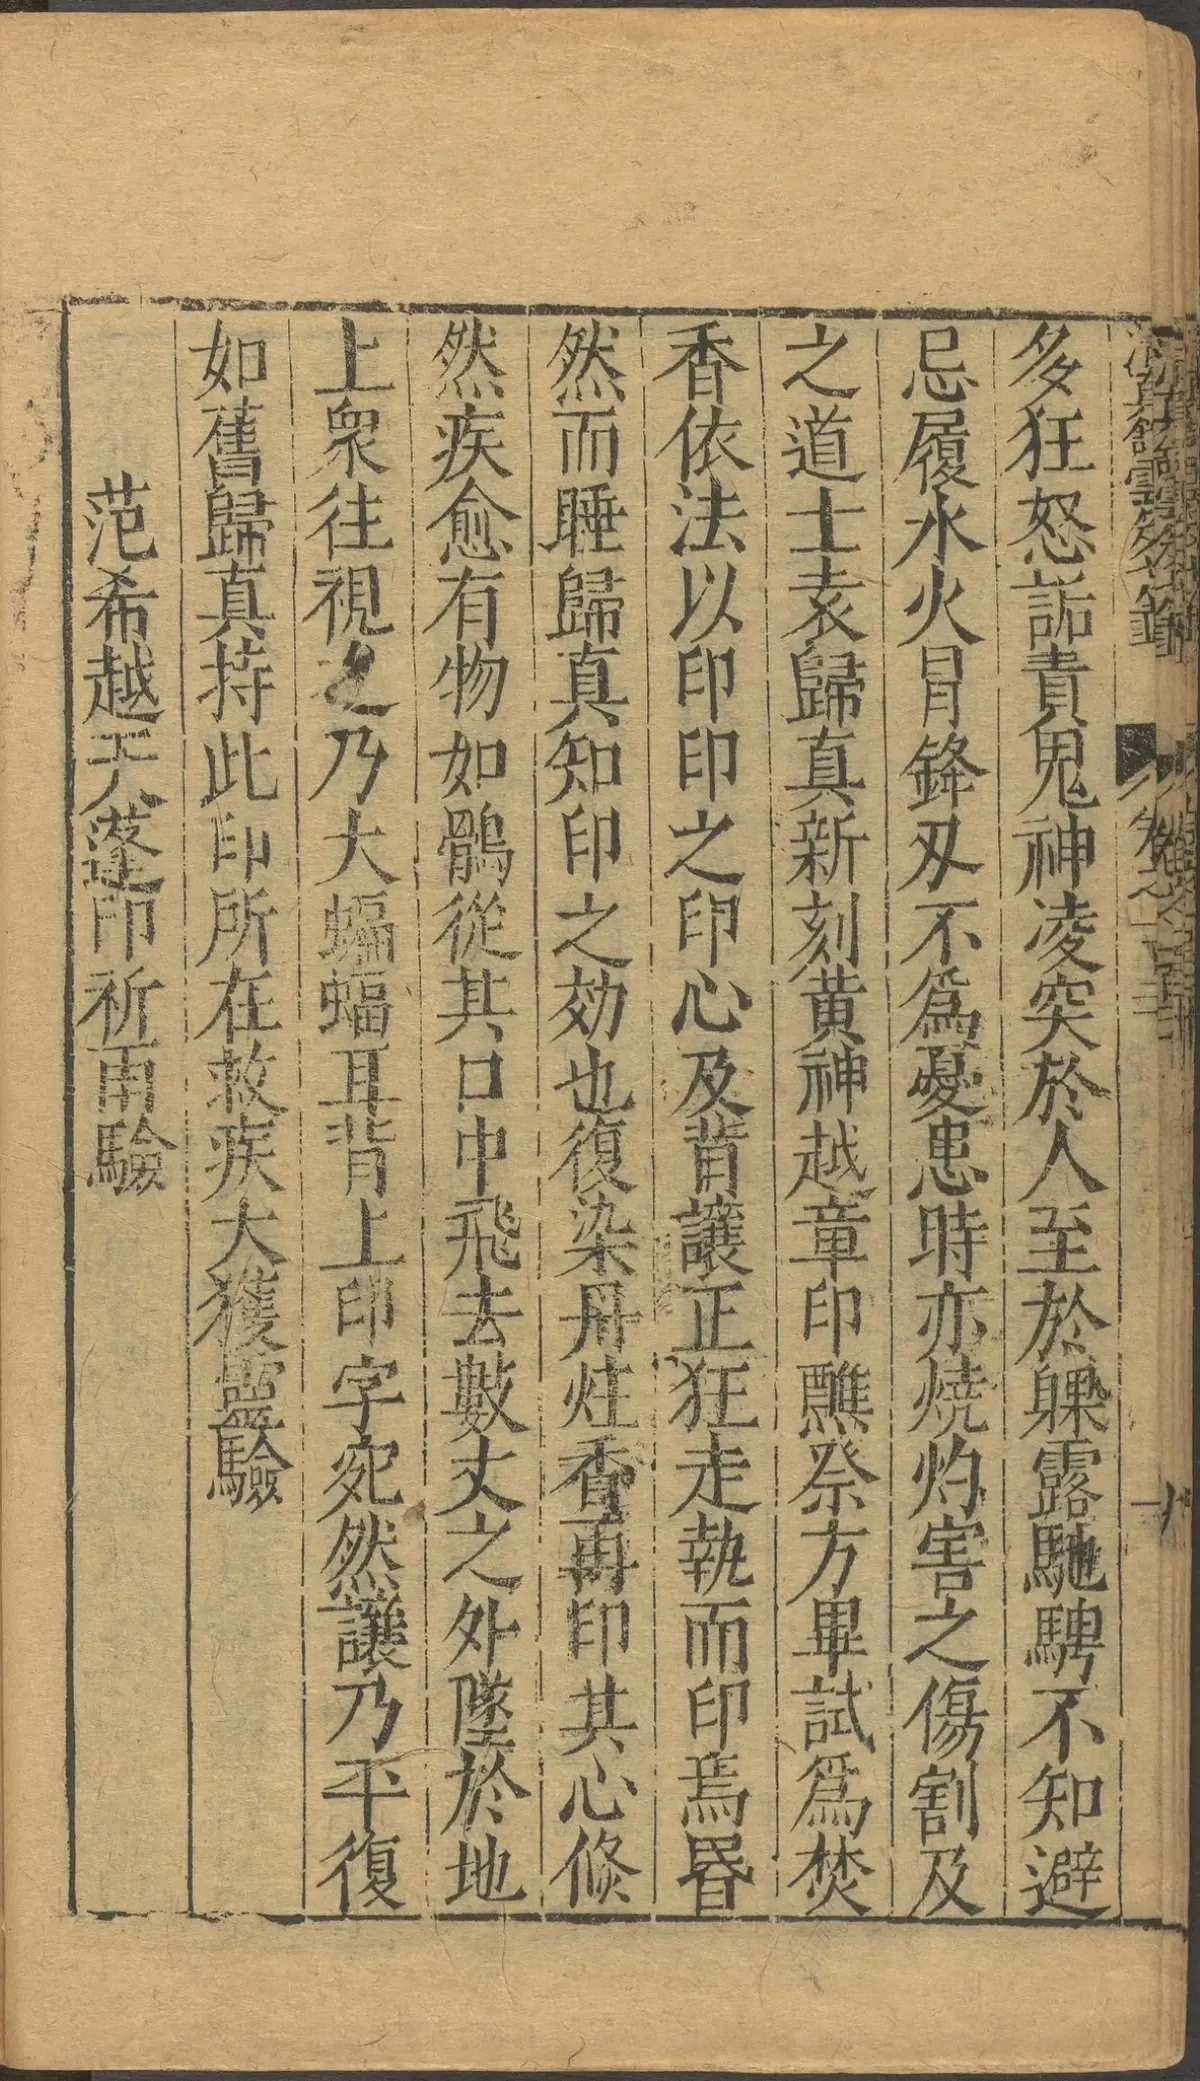 多狂怒詬責鬼神凌突於人至於躶露馳騁不知避
忌履水火冐鋒刄不爲憂患時亦燒灼害之傷割及
之道士袁歸真新刻黄神越章印醮祭方畢試爲焚
香依法以印印之印心及背讓正狂走執而印焉昬
然而睡歸真知印之効也復染丹炷香再印其心倐
然疾愈有物如鶻從其口中飛去數丈之外墜於地
上衆往視之乃大蝙蝠耳背上印字宛然讓乃平復
如舊歸真持此印所在救疾大獲靈驗
范希越天蓬印祈雨驗